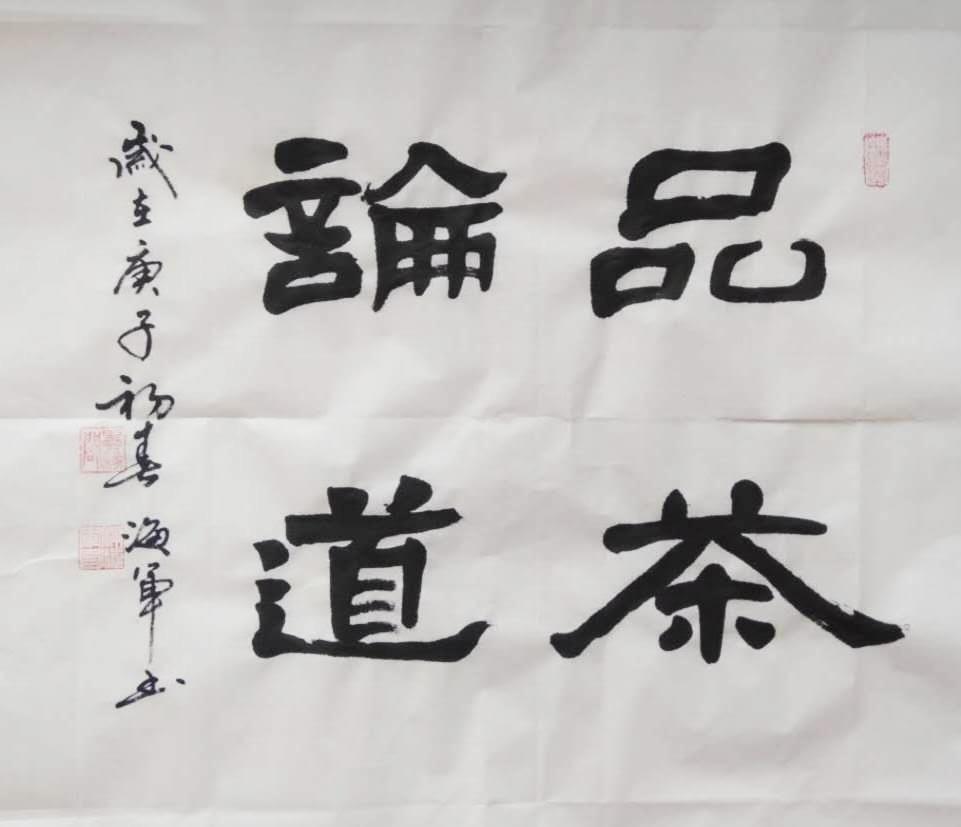 品茶
論道
歲在庚子初春海軍书